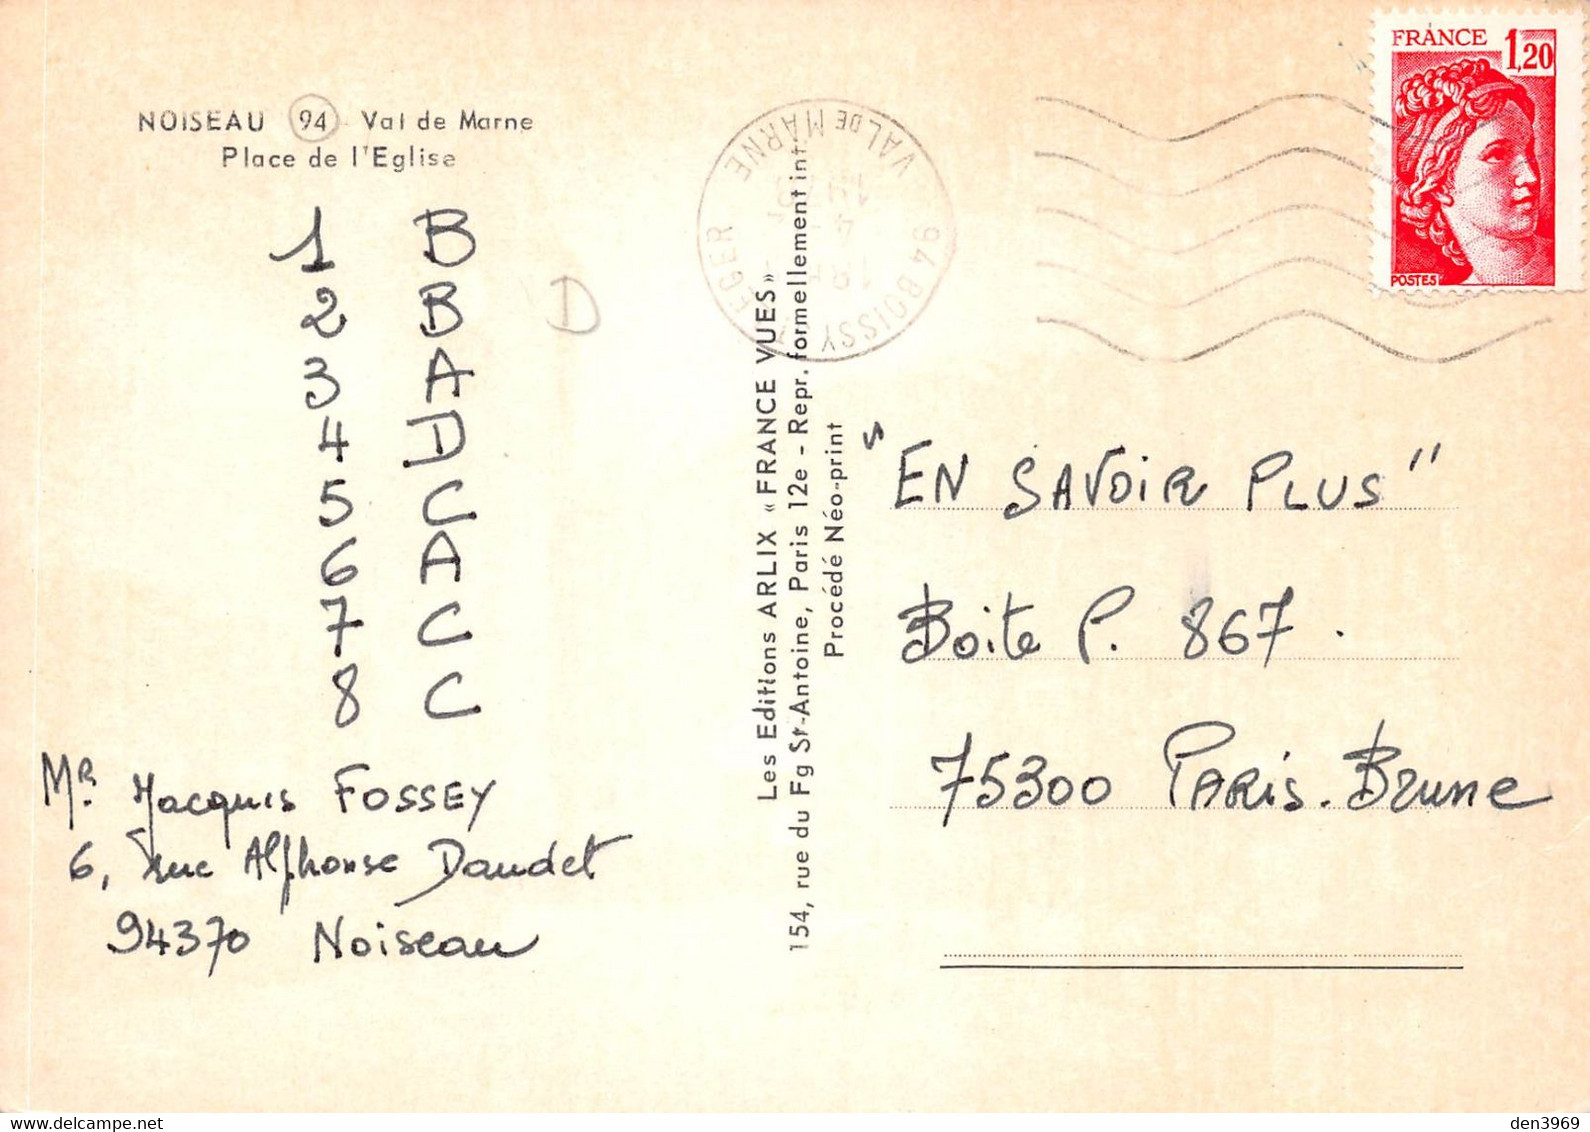 NOISEAU 94 Val de Marne
Place de l'Eglise
1 B
2 B
D
3 A
4 D
5 C
6 A
7 C
8 C
Mr. Jacques FOSSEY
6, rue Alphonse Daudet
94370 Noiseau
Les Editions ARLIX « FRANCE VUES »
154, rue du Fg St-Antoine, Paris 12e - Repr. formellement int.
Procédé Néo-print
94 BOISSY LEGER
VAL DE MARNE
FRANCE 1,20
POSTES
"EN SAVOIR PLUS"
Boite P. 867.
75300 PARIS. Brune
den3969